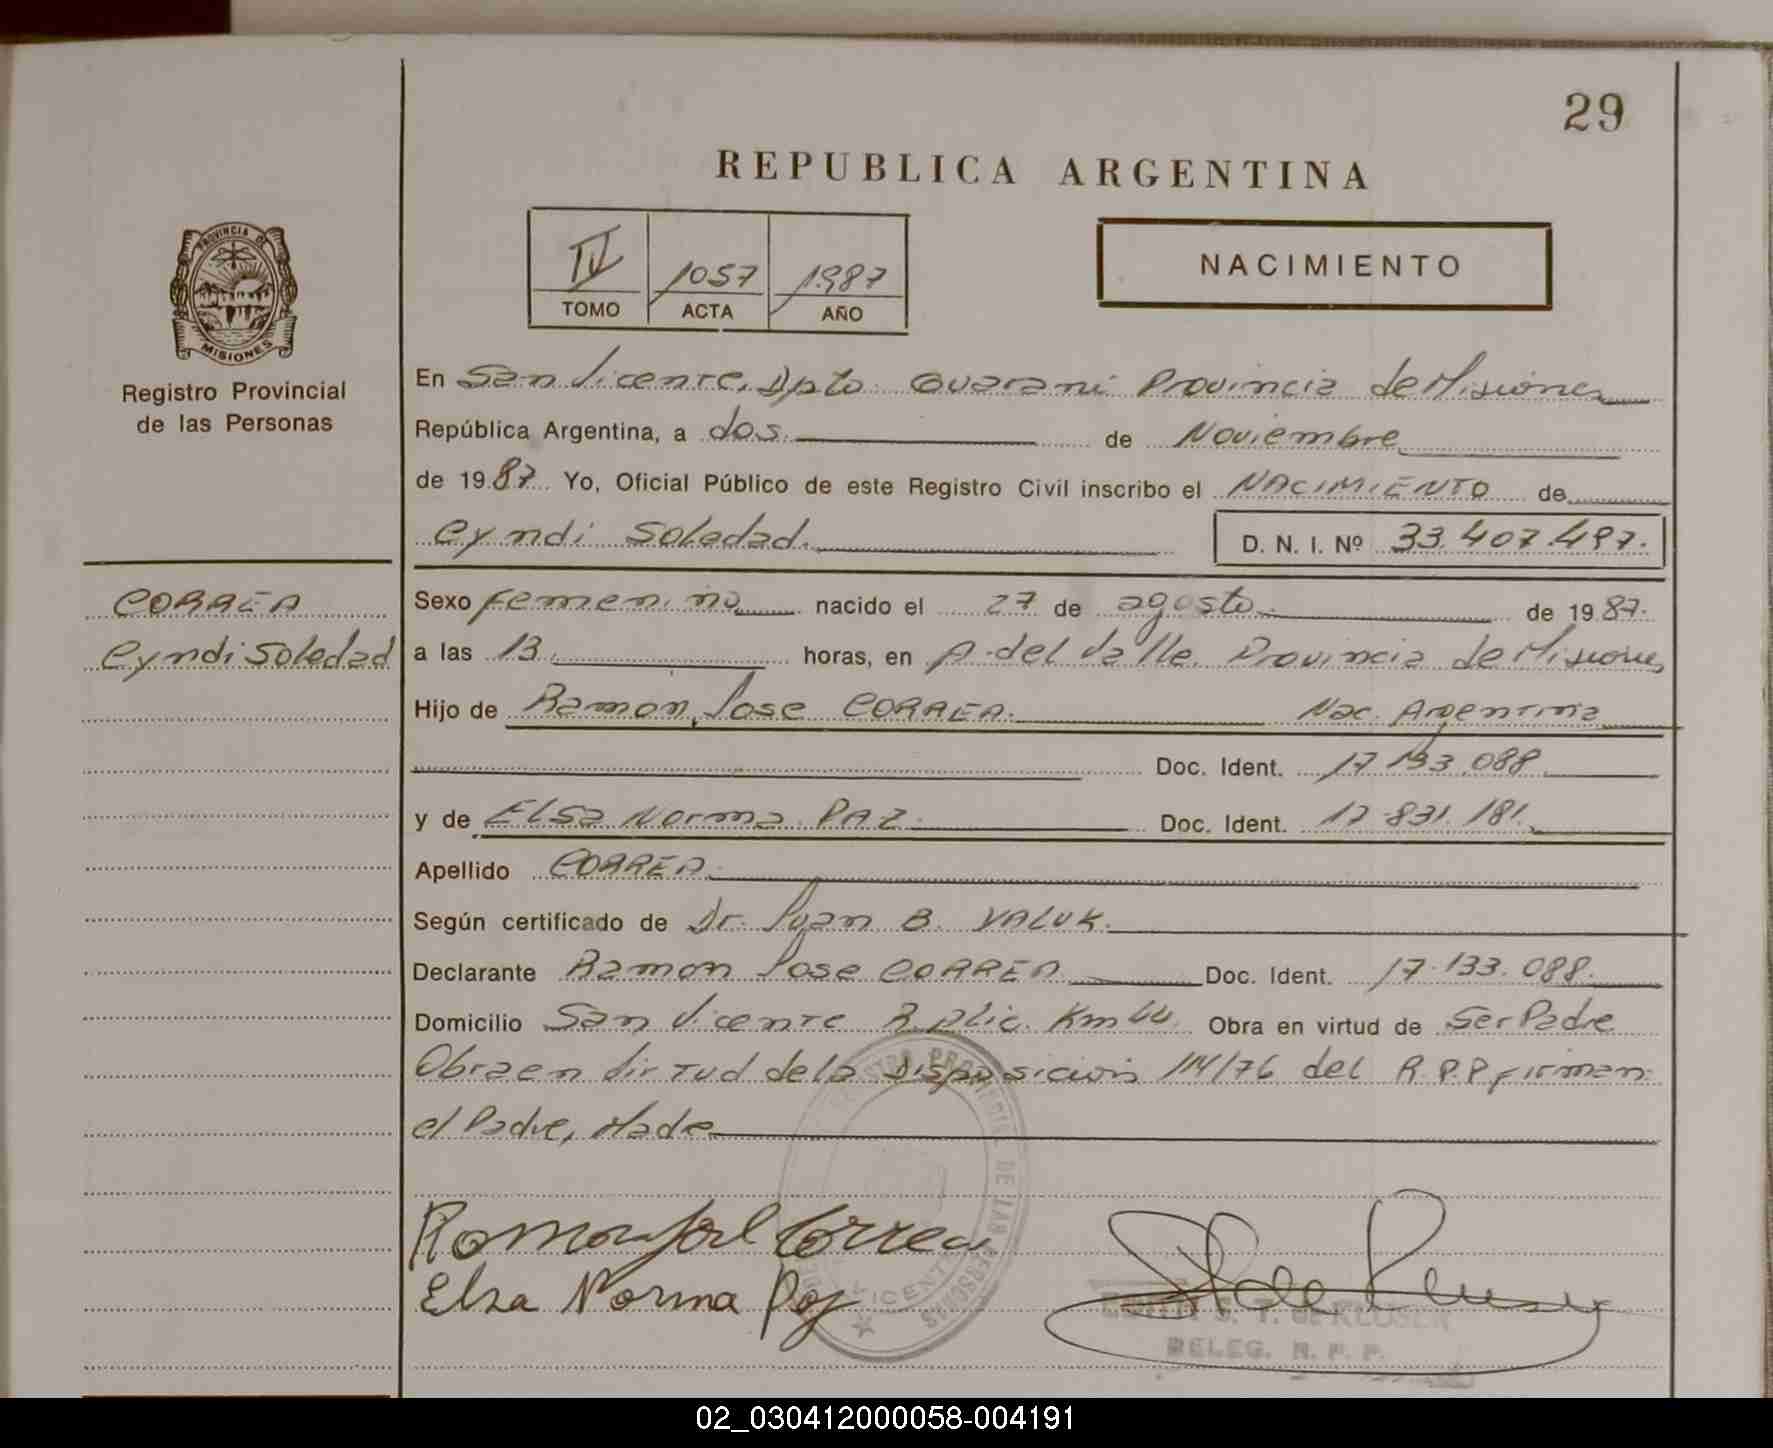 29
REPUBLICA ARGENTINA
IV 1057 1987
TOMO ACTA AÑO
NACIMIENTO
PROVINCIA DE
MISIONES
Registro Provincial
de las Personas
En San Vicente, Dpto. Guaraní Provincia de Misiones
República Argentina, a dos de Noviembre
de 1987 Yo, Oficial Público de este Registro Civil inscribo el NACIMIENTO de
Cyndi Soledad. D. N. I. Nº 33.407.497.
CORREA
Cyndi Soledad
Sexo femenino nacido el 27 de agosto de 1987.
a las 13. horas, en A. del Valle. Provincia de Misiones
Hijo de Ramon, Jose CORREA. Nac. Argentina
Doc. Ident. 17.133.088
y de ELSa Norma PAZ. Doc. Ident. 17.831.181.
Apellido CORREA.
Según certificado de Dr. Juan B. YALUK.
Declarante Ramon Jose CORREA Doc. Ident. 17.133.088.
Domicilio San Vicente Km Obra en virtud de Ser Padre
Obra en Virtud de la Disposición 114/76 del R.P.P firman
el Padre, Madre
Ramon José Correa
Elsa Norma Paz
REGISTRO PROVINCIAL DE LAS PERSONAS
VICENTE
S. T. de KLOSER
DELEG. R. P. P.
02_030412000058-004191